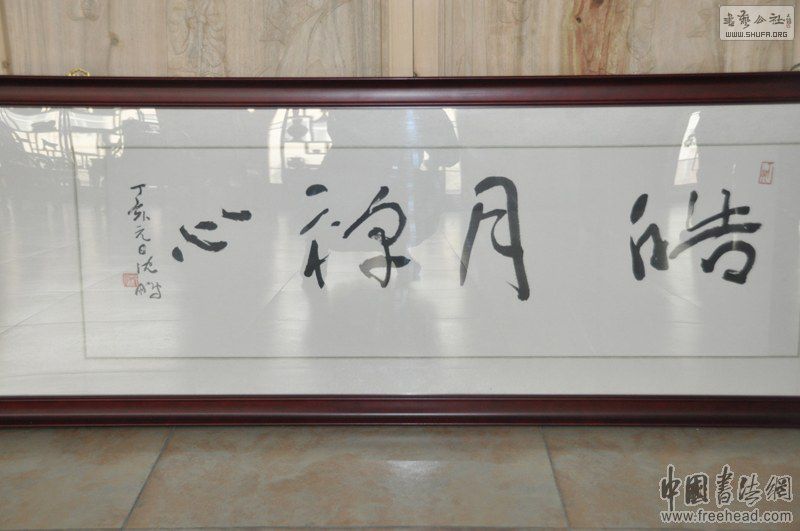 書藝公社
WWW.SHUFA.ORG
皓月禅心
丁亥元日沈鹏
中國書法網
www.freehead.com